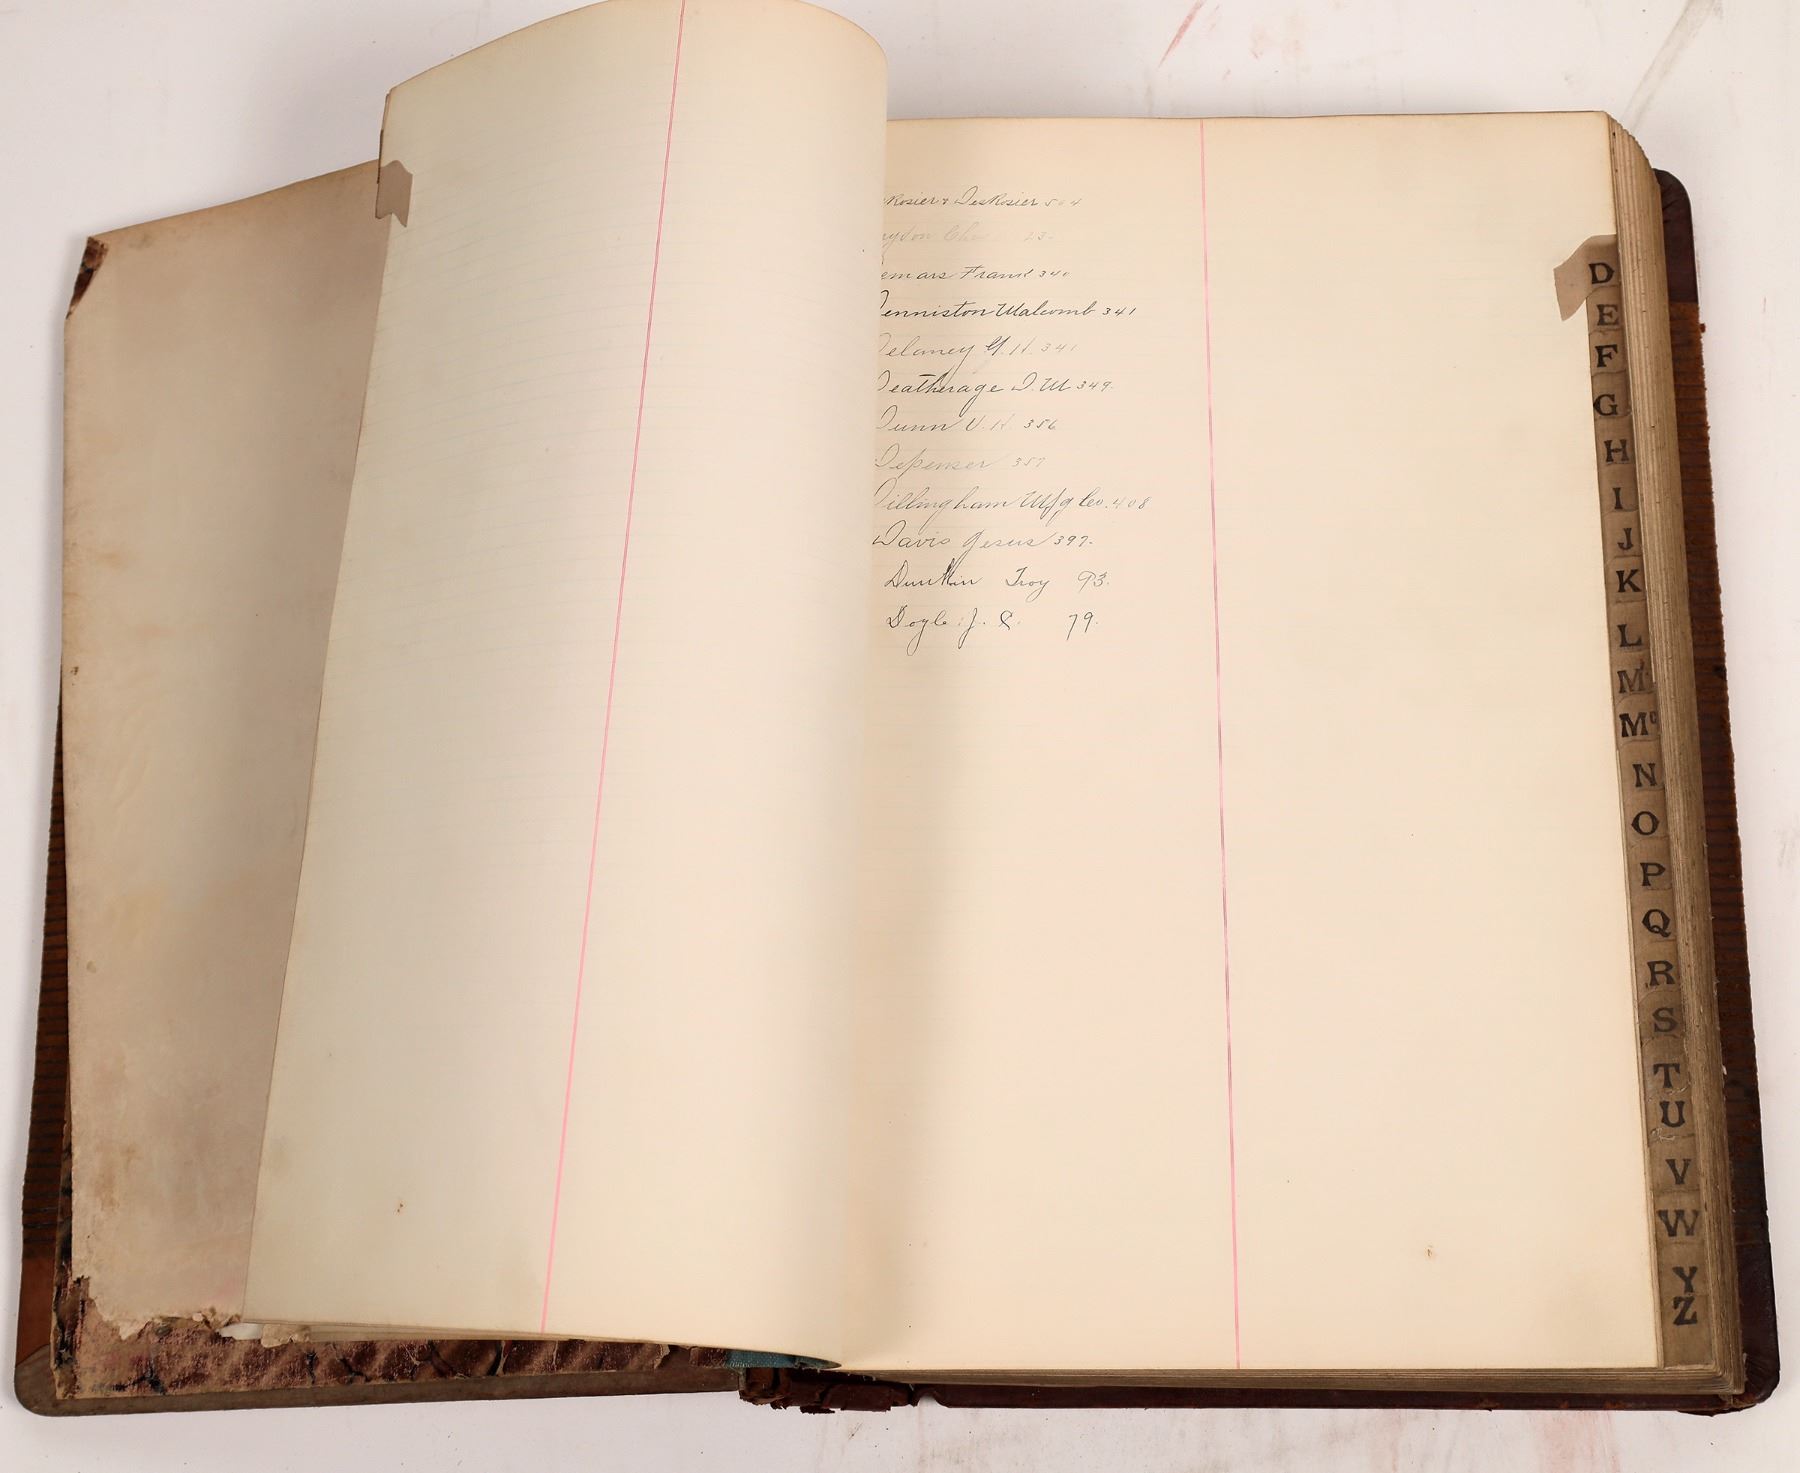 Rosier & DesRosier 504
emars Frank 340
Denniston Malcomb 341
Delaney G. H. 341
Deatherage D. M 349.
Dunn V. H. 356
Depenser 357
Dillingham Mfg Co. 408
Davis Jesus 397.
Dunkin Troy 93.
Doyle J. C. 79.
D
E
F
G
H
I
J
K
L
M
Mc
N
O
P
Q
R
S
T
U
V
W
Y
Z